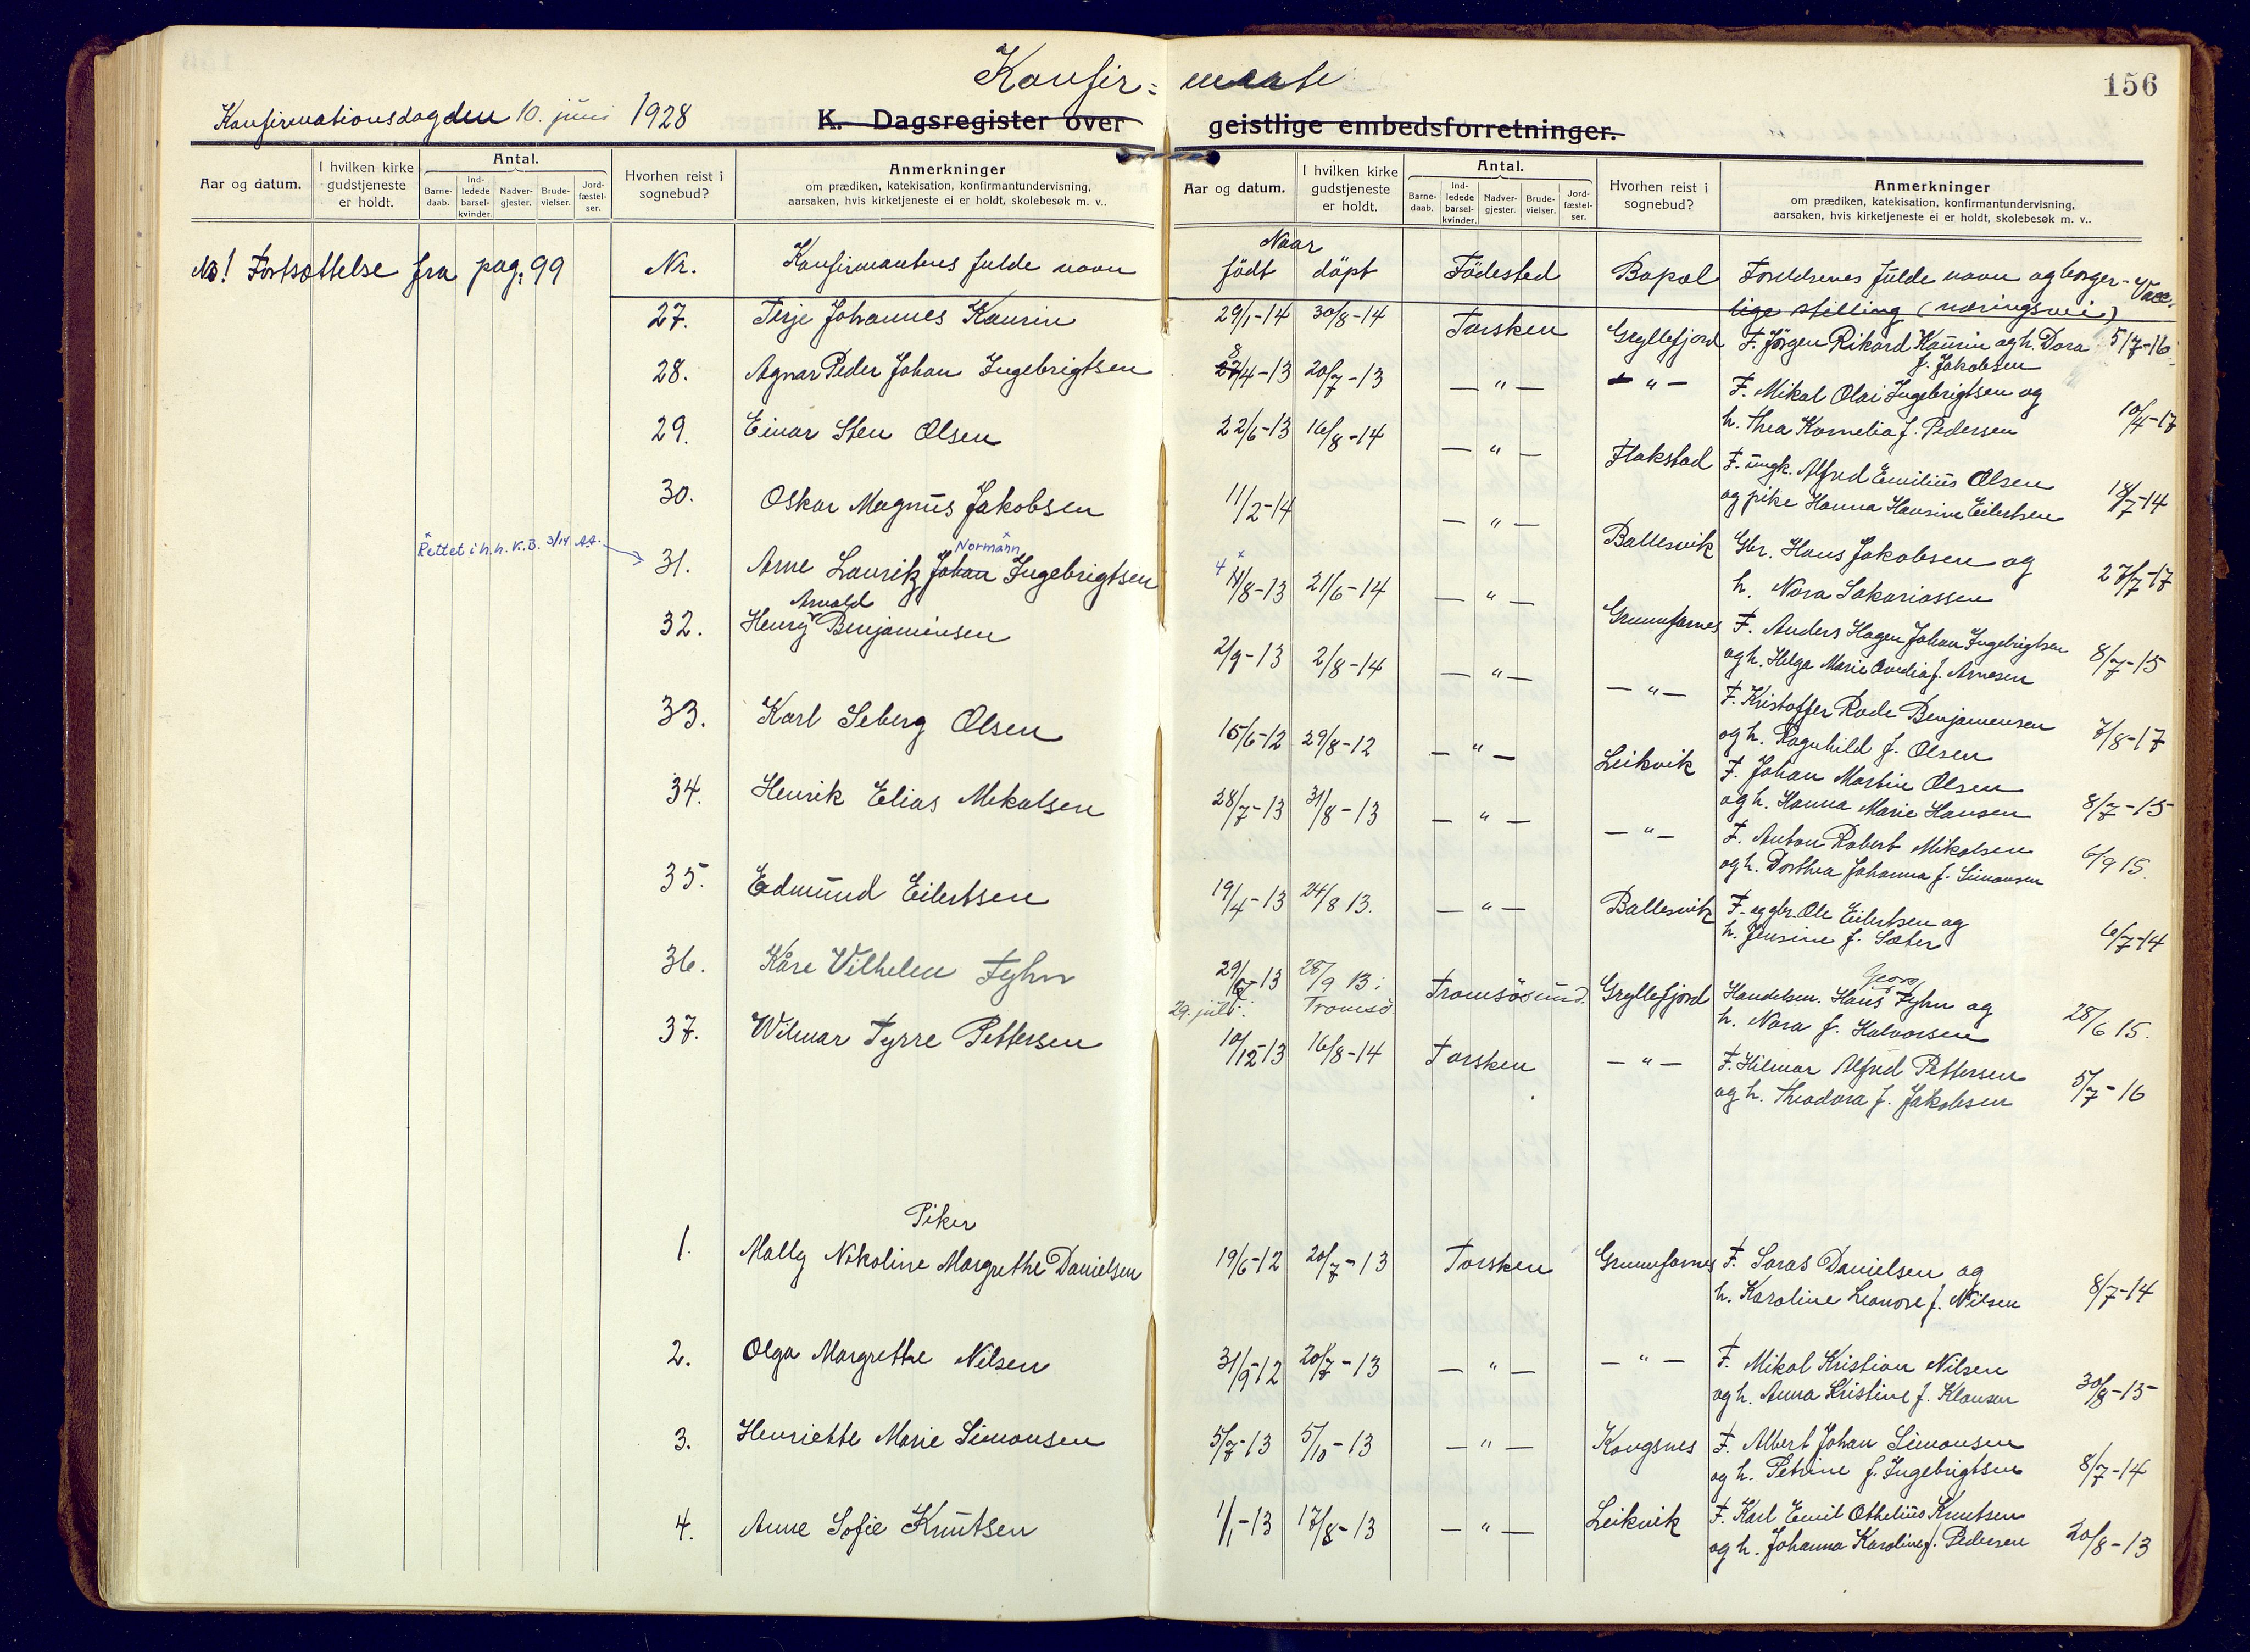 Konfir= mante
156
Konfirmationsdag den 10. juni 1928
K. Dagsregister over geistlige embedsforretninger.
Aar og datum. I hvilken kirke gudstjeneste er holdt. Antal. Barne-daab. Ind-ledede barsel-kvinder. Nadver-gjester. Brude-vielser. Jord-fæstel-ser. Hvorhen reist i sognebud? Anmerkninger om prædiken, katekisation, konfirmantundervisning, aarsaken, hvis kirketjeneste ei er holdt, skolebesøk m. v..
Aar og datum. I hvilken kirke gudstjeneste er holdt. Antal. Barne-daab. Ind-ledede barsel-kvinder. Nadver-gjester. Brude-vielser. Jord-fæstel-ser. Hvorhen reist i sognebud? Anmerkninger om prædiken, katekisation, konfirmantundervisning, aarsaken, hvis kirketjeneste ei er holdt, skolebesøk m. v..
NB! Fortsættelse fra pag. 99 Nr. Konfirmantens fulde navn Naar födt döpt Födested Bopæl Forældrenes fulde navn og borger- Vacc.
lige stilling (næringsvei)
27. Terje Johannes Kaurin 29/1-14 30/8-14 Torsken Gryllefjord F. Jörgen Rikard Kaurin og h. Dora 5/7-16
f. Jakobsen
28. Agnar Peder Johan Ingebrigtsen 8 27/4-13 20/7-13 — " — — " — F. Mikal Olai Ingebrigtsen og
h. Thea Kornelia f. Pedersen 10/4-17
29. Einar Sten Olsen 22/6-13 16/8-14 — " — Flakstad F. ungk. Alfred Emilius Olsen
og pike Hanna Hansine Eilertsen 18/7-14
30. Oskar Magnus Jakobsen 11/2-14 — " — Ballesvik Gbr. Hans Jakobsen og
h. Nora Sakariassen 27/7-17
Rettet i h.h. K.D. 3/14 AA. 31. Arne Lauritz Johan Normann Ingebrigtsen 4 11/8-13 21/6-14 — " — Grunnfarnes F. Anders Hagen Johan Ingebrigtsen
og h. Helga Marie Ovedia f. Arnesen 8/7-15
32. Henry Arnold Benjaminsen 2/9-13 2/8-14 — " — — " — F. Kristoffer Rode Benjamensen
og h. Ragnhild f. Olsen 7/8-17
33. Karl Seberg Olsen 15/6-12 29/8-12 — " — Leikvik F. Johan Martin Olsen
og h. Hanna Marie Hansen 8/7-15
34. Henrik Elias Mikalsen 28/7-13 31/8-13 — " — — " — F. Anton Robert Mikalsen
og h. Dorthea Johanna f. Simonsen 6/9 15.
35. Edmund Eilertsen 19/4-13 24/8 13. — " — Ballesvik F. og gbr. Ole Eilertsen og
h. Jensine f. Sæter 6/7-14
36. Kåre Vilhelm Fyhn 29/6-13 28/9 13 i Tromsösund. Gryllefjord Handelsm. Hans Georg Fyhn og
29. juli: Tromsö h. Nora f. Halvorsen 28/6 15.
37. Wilmar Tyrre Pettersen 10/12-13 16/8-14 Torsken — " — F. Hilmar Alfred Pettersen
og h. Theodora f. Jakobsen 5/7-16
Piker
1. Mally Nikoline Margrethe Danielsen 19/6-12 20/7-13 Torsken Grunnfarnes F. Saras Danielsen og
h. Karoline Leonore f. Nilsen 8/7-14
2. Olga Margrethe Nilsen 31/9-12 20/7-13 — " — — " — F. Mikal Kristian Nilsen
og h. Anna Kristine f. Klausen 30/8-15
3. Henriette Marie Simonsen 5/7-13 5/10-13 — " — Kongsnes F. Albert Johan Simonsen
og h. Petrine f. Ingebrigtsen 8/7-14
4. Anne Sofie Knutsen 1/1-13 17/8-13 — " — Leikvik F. Karl Emil Othelius Knutsen
og h. Johanna Karoline f. Pedersen 20/8-13